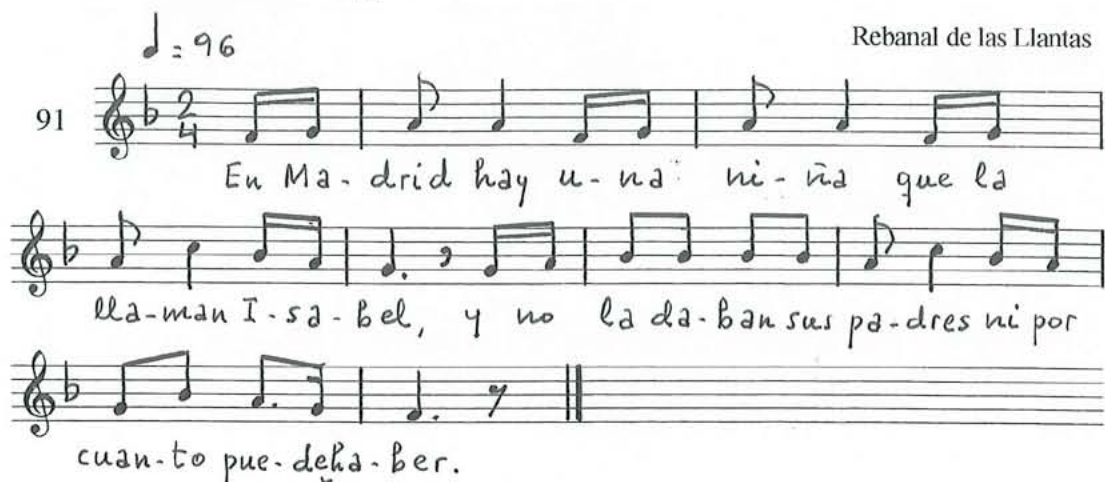 ♩ = 96
Rebanal de las Llantas
91
2
4
En Ma - drid hay u - na ni - ña que la
lla - man I - sa - bel, y no la da - ban sus pa - dres ni por
cuan - to pue - de ha - ber.